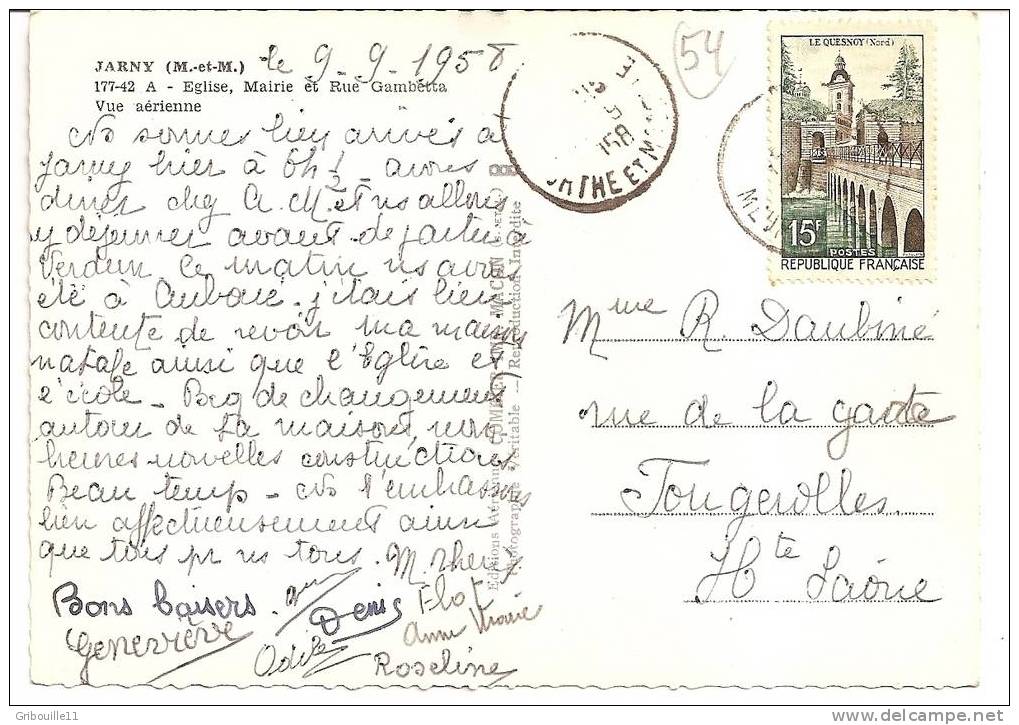 JARNY (M.-et-M.)
177-42 A - Eglise, Mairie et Rue Gambetta
Vue aérienne
le 9-9-1958
54
LE QUESNOY (Nord)
15F
POSTES
RÉPUBLIQUE FRANÇAISE
Ns sommes bien arrivés à
Jarny hier à 6h ½ - avons
diner chez A. M. et ns allons
y déjeuner avant de partir à
Verdun. Ce matin ns avons
été à Auboué. j'étais bien
contente de revoir ma maison
natale ainsi que l'Eglise et
l'école - Bcq de changement
autour de la maison,
nouvelles constructions
Beau temp - Ns t'embrassons
bien affectueusement ainsi
que tous pr ns tous. M.
Bons baisers.
Geneviève
Denis
Odile
Flo
Anne Marie
Roseline
Editions Aériennes COMBIER IMP. MACON
Photographie véritable - Reproduction Interdite
Mme R. Daubiné
rue de la gare
Fougerolles
Hte Saône
Gribouille11
delcampe.net